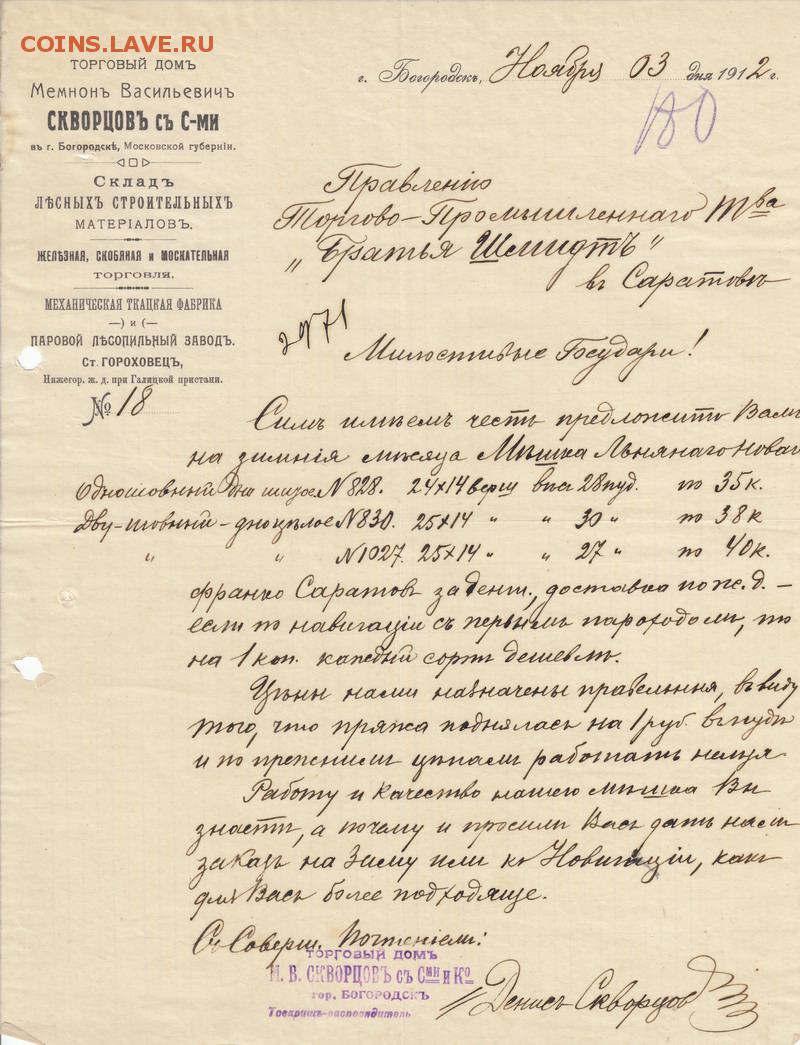 COINS.LAVE.RU
ТОРГОВЫЙ ДОМЪ
Мемнонъ Васильевичъ
СКВОРЦОВЪ съ С-ми
въ г. Богородскѣ, Московской губерніи.
Складъ
ЛѢСНЫХЪ СТРОИТЕЛЬНЫХЪ
МАТЕРІАЛОВЪ.
ЖЕЛѢЗНАЯ, СКОБЯНАЯ и МОСКАТЕЛЬНАЯ
ТОРГОВЛЯ.
МЕХАНИЧЕСКАЯ ТКАЦКАЯ ФАБРИКА
—) и (—
ПАРОВОЙ ЛѢСОПИЛЬНЫЙ ЗАВОДЪ.
Ст. ГОРОХОВЕЦЪ,
Нижегор. ж. д. при Галицкой пристани.
№ 18
г. Богородскъ, Ноября 03 дня 1912 г.
180
Правленію
Торгово-Промышленнаго Тва
„Братья Шмидтъ"
въ Саратовѣ
2971
Милостивые Государи!
Симъ имѣемъ честь предложить Вамъ
на зимнія мѣсяца Мѣшка Льнянаго Новаго
Одношовный N828. 24х14 верш вѣс 28 пуд. по 35 к.
Дву-шовный - дно цѣлое N830. 25х14 " " 30 " по 38 к
" " N1027. 25х14 " " 27 " по 40 к.
франко Саратовъ за деньг., доставка по ж. д. -
если по навигаціи съ первымъ пароходомъ, то
на 1 коп. каждый сортъ дешевлѣ.
Цѣны нами назначены правельныя, въ виду
того, что пряжа поднялась на 1 руб. въ пудѣ
и по прежнимъ цѣнамъ работать нельзя
Работу и качество нашего мѣшка Вы
знаете, а почему и просили Васъ дать намъ
заказъ на Зиму или къ Новигаціи, какъ
для Васъ более подходяще.
Съ Соверш. Почтеніемъ:
ТОРГОВЫЙ ДОМЪ
М. В. СКВОРЦОВЪ съ Сми и Ко
гор. БОГОРОДСКЪ
Товарищъ-распорядитель
Денисъ Скворцов